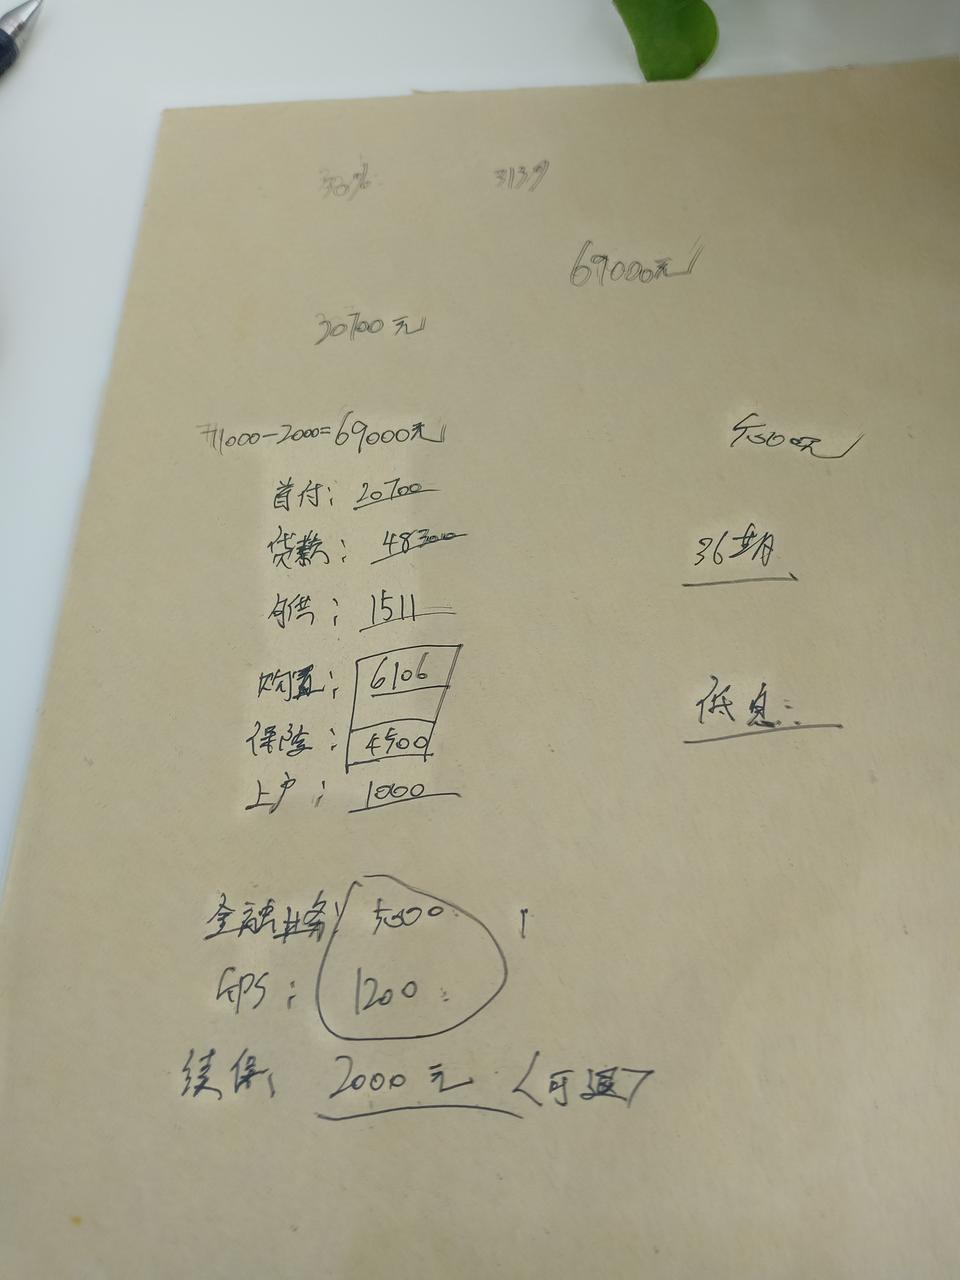 30%
69000元
30700元
71000-2000=69000元
首付: 20700
贷款: 48300
36期
月供: 1511
购置: 6106
低息:
保险: 4500
上户: 1000
金融业务: 5000
GPS: 1200
续保: 2000元 (可退)